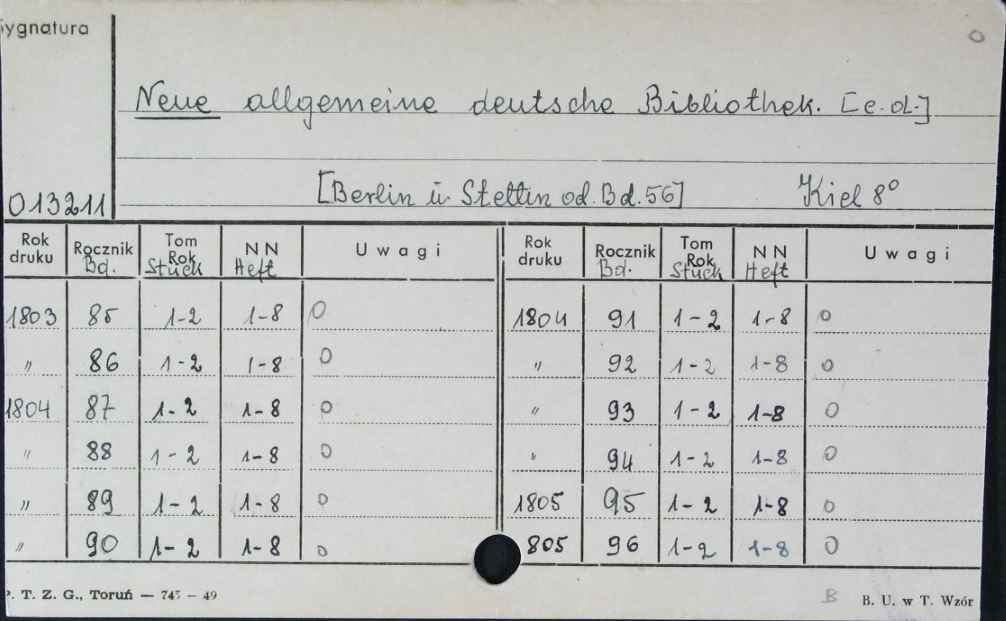 Sygnatura
Neue allgemeine deutsche Bibliothek. [c. d.]
013211 [Berlin u. Stettin od. Bd. 56] Kiel 8°
Rok druku Rocznik Bd. Tom Rok Stück NN Heft Uwagi Rok druku Rocznik Bd. Tom Rok Stück NN Heft Uwagi
1803 85 1-2 1-8 0 1804 91 1-2 1-8 0
" 86 1-2 1-8 0 " 92 1-2 1-8 0
1804 87 1-2 1-8 0 " 93 1-2 1-8 0
" 88 1-2 1-8 0 " 94 1-2 1-8 0
" 89 1-2 1-8 0 1805 95 1-2 1-8 0
" 90 1-2 1-8 0 805 96 1-2 1-8 0
P. T. Z. G., Toruń — 745 — 49 B B. U. w T. Wzór